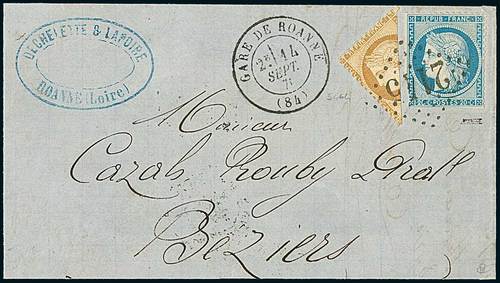 DECHELETTE & LAPOIRE
ROANNE (Loire)
GARE DE ROANNE
2E 14
SEPT.
71
(84)
REPUB. FRANC.
20 C. POSTES 20 C.
Monsieur
Cazals Rouby
Beziers